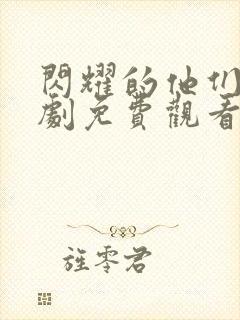 閃耀的他们
劇免費觀看
旌零君